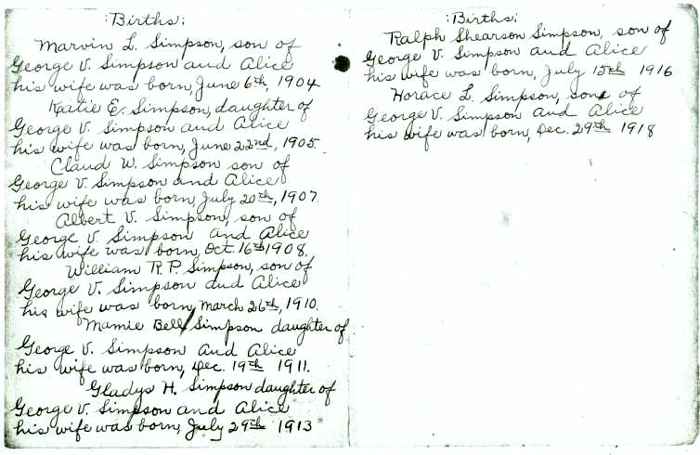 :Births:
Marvin L. Simpson, son of
George V. Simpson and Alice
his wife was born, June 6th, 1904
Katie E. Simpson, daughter of
George V. Simpson and Alice
his wife was born, June 22nd, 1905.
Claud W. Simpson son of
George V. Simpson and Alice
his wife was born, July 20th, 1907
Albert V. Simpson, son of
George V. Simpson and Alice
his wife was born, Oct. 16th 1908.
William R.P. Simpson, son of
George V. Simpson and Alice
his wife was born, March 26th, 1910.
Mamie Bell Simpson daughter of
George V. Simpson and Alice
his wife was born, Dec. 19th 1911.
Gladys H. Simpson daughter of
George V. Simpson and Alice
his wife was born, July 29th 1913
:Births:
Ralph Shearson Simpson, son of
George V. Simpson and Alice
his wife was born, July 15th 1916
Horace L. Simpson, son of
George V. Simpson and Alice
his wife was born, Dec. 29th 1918